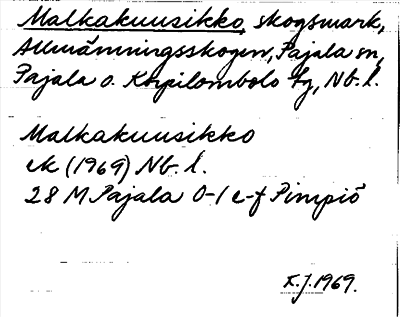 Malkakuusikko, skogsmark,
Allmänningsskogen, Pajala sn,
Pajala o. Korpilombolo tg, Nb. l.
Malkakuusikko
ek (1969) Nb. l.
28 M Pajala 0-1 e-f Pimpiö
K.J. 1969.